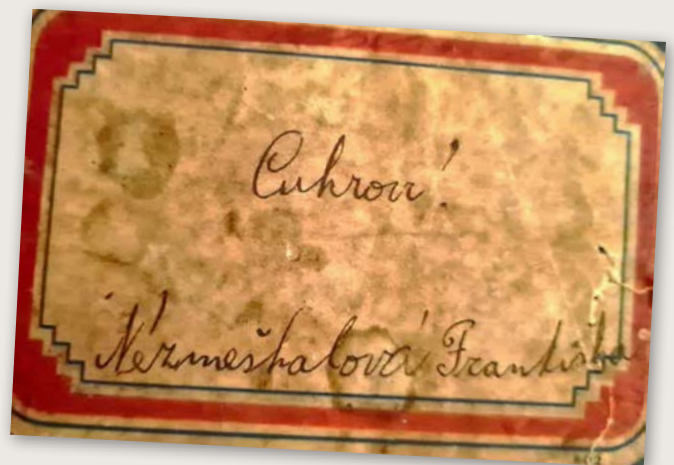 Cukroví!
Nezmeškalová Františka